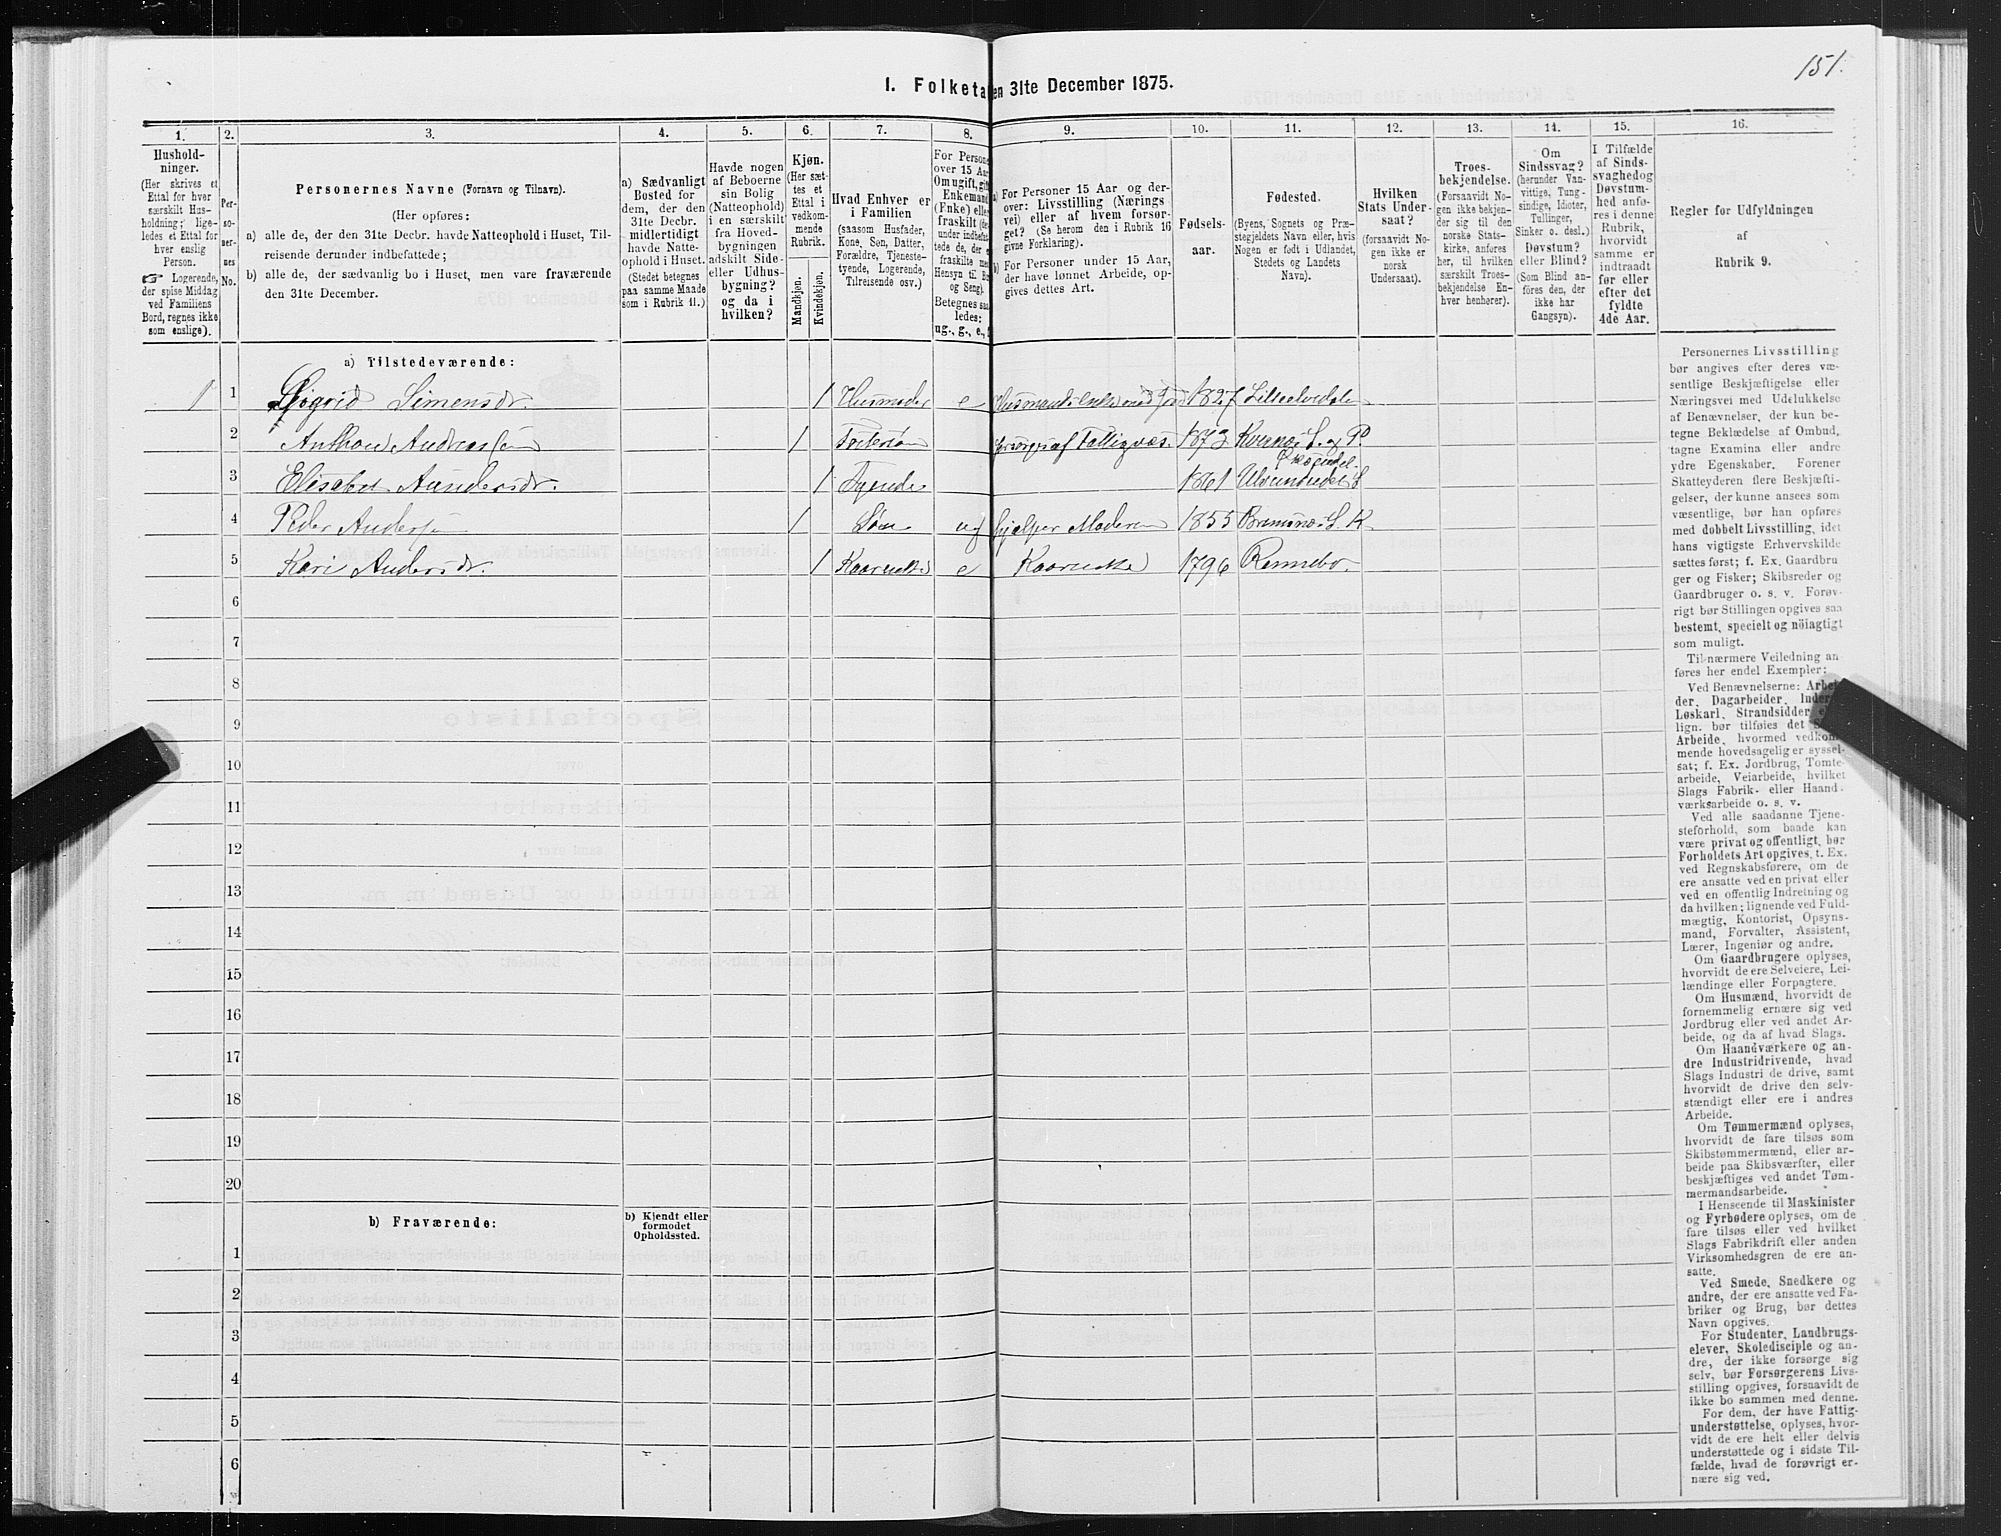 151.
I. Folketal den 31te December 1875.
1. 2. 3. 4. 5. 6. 7. 8. 9. 10. 11. 12. 13. 14. 15. 16.
Hushold-
ninger.
(Her skrives et
Ettal for hver
særskilt Hus-
holdning; lige-
ledes et Ettal for
hver enslig
Person.
☞ Logerende,
der spise Middag
ved Familiens
Bord, regnes ikke
som enslige).
Per-
so-
ner-
nes
No.
Personernes Navne (Fornavn og Tilnavn).
(Her opføres:
a) alle de, der den 31te Decbr. havde Natteophold i Huset, Til-
reisende derunder indbefattede;
b) alle de, der sædvanlig bo i Huset, men vare fraværende
den 31te December.
a) Sædvanligt
Bosted for
dem, der den
31te Decbr.
midlertidigt
havde Natte-
ophold i Huset.
(Stedet betegnes
paa samme Maade
som i Rubrik 11.)
Havde nogen
af Beboerne
sin Bolig
(Natteophold)
i en særskilt
fra Hoved-
bygningen
adskilt Side-
eller Udhus-
bygning?
og da i
hvilken?
Kjøn.
(Her sæt-
tes et
Ettal i
vedkom-
mende
Rubrik.
Mandkjøn.
Kvindekjøn.
Hvad Enhver er
i Familien
(saasom Husfader,
Kone, Søn, Datter,
Forældre, Tjeneste-
tyende, Logerende,
Tilreisende osv.)
For Persone
over 15 Aar
Om ugift, gift
Enkemand
(Enke) elle
fraskilt
under indbefat-
tede de, der e
fraskilte me
Hensyn til Bo
og Seng).
Betegnes saa-
ledes:
ug., g., e.,
a) For Personer 15 Aar og der-
over: Livsstilling (Nærings
vei) eller af hvem forsør-
get? (Se herom den i Rubrik 16
givne Forklaring).
b) For Personer under 15 Aar,
der have lønnet Arbeide, op-
gives dettes Art.
Fødsels-
aar.
Fødested.
(Byens, Sognets og Præ-
stegjeldets Navn eller, hvis
Nogen er født i Udlandet,
Stedets og Landets
Navn).
Hvilken
Stats Under-
saat?
(forsaavidt No-
gen ikke er
norsk
Undersaat).
Troes-
bekjendelse.
(Forsaavidt No-
gen ikke bekjen-
der sig til den
norske Stats-
kirke, anføres
her, til hvilken
særskilt Troes-
bekjendelse En-
hver henhører).
Om
Sindssvag?
(herunder Van-
vittige, Tung-
sindige, Idioter,
Tullinger,
Sinker o. desl.)
Døvstum?
eller Blind?
(Som Blind an-
føres den, der
ikke har
Gangsyn).
I Tilfælde
af Sinds-
svaghed og
Døvstum-
hed anfø-
res i denne
Rubrik,
hvorvidt
samme er
indtraadt
før eller
efter det
fyldte
4de Aar.
Regler for Udfyldningen
af
Rubrik 9.
a) Tilstedeværende:
1 1 Sigrid Simensdr. 1 Husmoder e Husmands Enke med Jord 1827 Lilleelvedalen
2 Anthon Andreassen 1 Fostersøn forsørges af Fattigvæs. 1873 Kvernæs S. og P.
3 Elisabet Aundersdr. 1 Tyende 1861 Øksendal. Ulvundeidet S
4 Peder Andersen 1 Søn ug hjelper Moderen 1855 Bremsnæs S. K.
5 Kari Andersdr. 1 Kaarenke e Kaarenke 1796 Rennebo.
6
7
8
9
10
11
12
13
14
15
16
17
18
19
20
b) Fraværende:
b) Kjendt eller
formodet
Opholdssted.
1
2
3
4
5
6
Personernes Livsstilling
bør angives efter deres væ-
sentlige Beskjæftigelse eller
Næringsvei med Udelukkelse
af Benævnelser, der kun be-
tegne Beklædelse af Ombud,
tagne Examina eller andre
ydre Egenskaber. Forener
Skatteyderen flere Beskjæfti-
gelser, der kunne ansees som
væsentlige, bør han opføres
med dobbelt Livsstilling, idet
hans vigtigste Erhvervskilde
sættes først; f. Ex. Gaardbru
ger og Fisker; Skibsreder og
Gaardbruger o. s. v. Forøv-
rigt bør Stillingen opgives saa
bestemt, specielt og nöiagtigt
som muligt.
Til nærmere Veiledning an
føres her endel Exempler:
Ved Benævnelserne: Arbei
der, Dagarbeider, Inders
Løskarl, Strandsidder e
lign. bør tilføies det S
Arbeide, hvormed vedkom
mende hovedsagelig er syssel-
sat; f. Ex. Jordbrug, Tomte-
arbeide, Veiarbeide, hvilket
Slags Fabrik- eller Haand-
værksarbeide o. s. v.
Ved alle saadanne Tjene-
steforhold, som baade kan
være privat og offentligt, bør
Forholdets Art opgives, t. Ex.
ved Regnskabsførere, om de
ere ansatte ved en privat eller
ved en offentlig Indretning og
da hvilken; lignende ved Fuld-
mægtig, Kontorist, Opsyns-
mand, Forvalter, Assistent,
Lærer, Ingeniør og andre.
Om Gaardbrugere oplyses,
hvorvidt de ere Selveiere, Lei-
lændinge eller Forpagtere.
Om Husmænd, hvorvidt de
fornemmelig ernære sig ved
Jordbrug eller ved andet Ar-
beide, og da af hvad Slags.
Om Haandværkere og an-
dre Industridrivende, hvad
Slags Industri de drive, samt
hvorvidt de drive den selv-
stændigt eller ere i andres
Arbeide.
Om Tømmermænd oplyses,
hvorvidt de fare tilsøs som
Skibstømmermænd, eller ar-
beide paa Skibsværfter, eller
beskjæftiges ved andet Tøm-
mermandsarbeide.
I Henseende til Maskinister
og Fyrbødere oplyses, om de
fare tilsøs eller ved hvilket
Slags Fabrikdrift eller anden
Virksomhedsgren de ere an-
satte.
Ved Smede, Snedkere og
andre, der ere ansatte ved Fa-
briker og Brug, bør dettes
Navn opgives.
For Studenter, Landbrugs-
elever, Skoledisciple og an-
dre, der ikke forsørge sig
selv, bør Forsørgerens Livs-
stilling opgives, forsaavidt de
ikke bo sammen med denne.
For dem, der have Fattig-
understøttelse, oplyses, hvor-
vidt de ere helt eller delvis
understøttede og i sidste Til-
fælde, hvad de forøvrigt er-
nære sig ved.